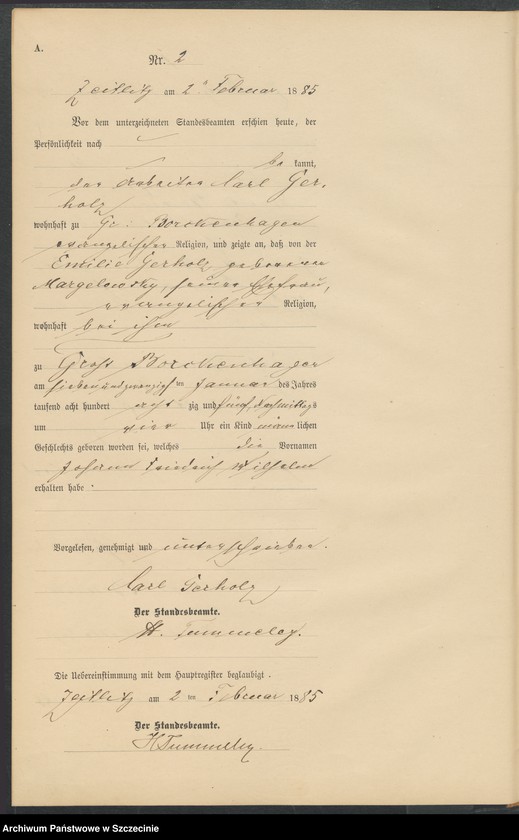 A.
Nr. 2
Zeitlitz am 2ⁿ Februar 1885
Vor dem unterzeichneten Standesbeamten erschien heute, der
Persönlichkeit nach
bekannt,
der Arbeiter Carl Ger-
holz
wohnhaft zu Gr. Borckenhagen
evangelischer Religion, und zeigte an, daß von der
Emilie Gerholz geborenen
seiner Ehefrau,
evangelischer Religion,
wohnhaft bei ihm
zu Groß Borckenhagen
am siebenundzwanzigsten Januar des Jahres
tausend acht hundert achtzig und fünf, Nachmittags
um vier Uhr ein Kind männlichen
Geschlechts geboren worden sei, welches die Vornamen
Johann Friedrich Wilhelm
erhalten habe.
Vorgelesen, genehmigt und unterschrieben.
Carl Gerholz
Der Standesbeamte.
H. Tummeley.
Die Uebereinstimmung mit dem Hauptregister beglaubigt.
Zeitlitz am 2ten Februar 1885
Der Standesbeamte.
H Tummeley.
Archiwum Państwowe w Szczecinie